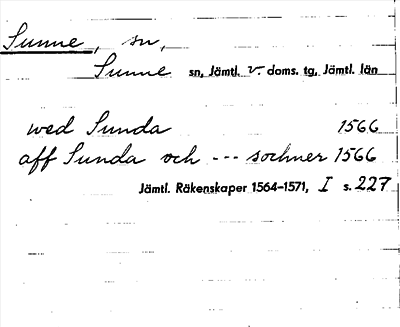 Sunne, sn,
Sunne sn, Jämtl. v. doms. tg, Jämtl. län
wed Sunda 1566
aff Sunda och --- sochner 1566
Jämtl. Räkenskaper 1564-1571, I s. 227